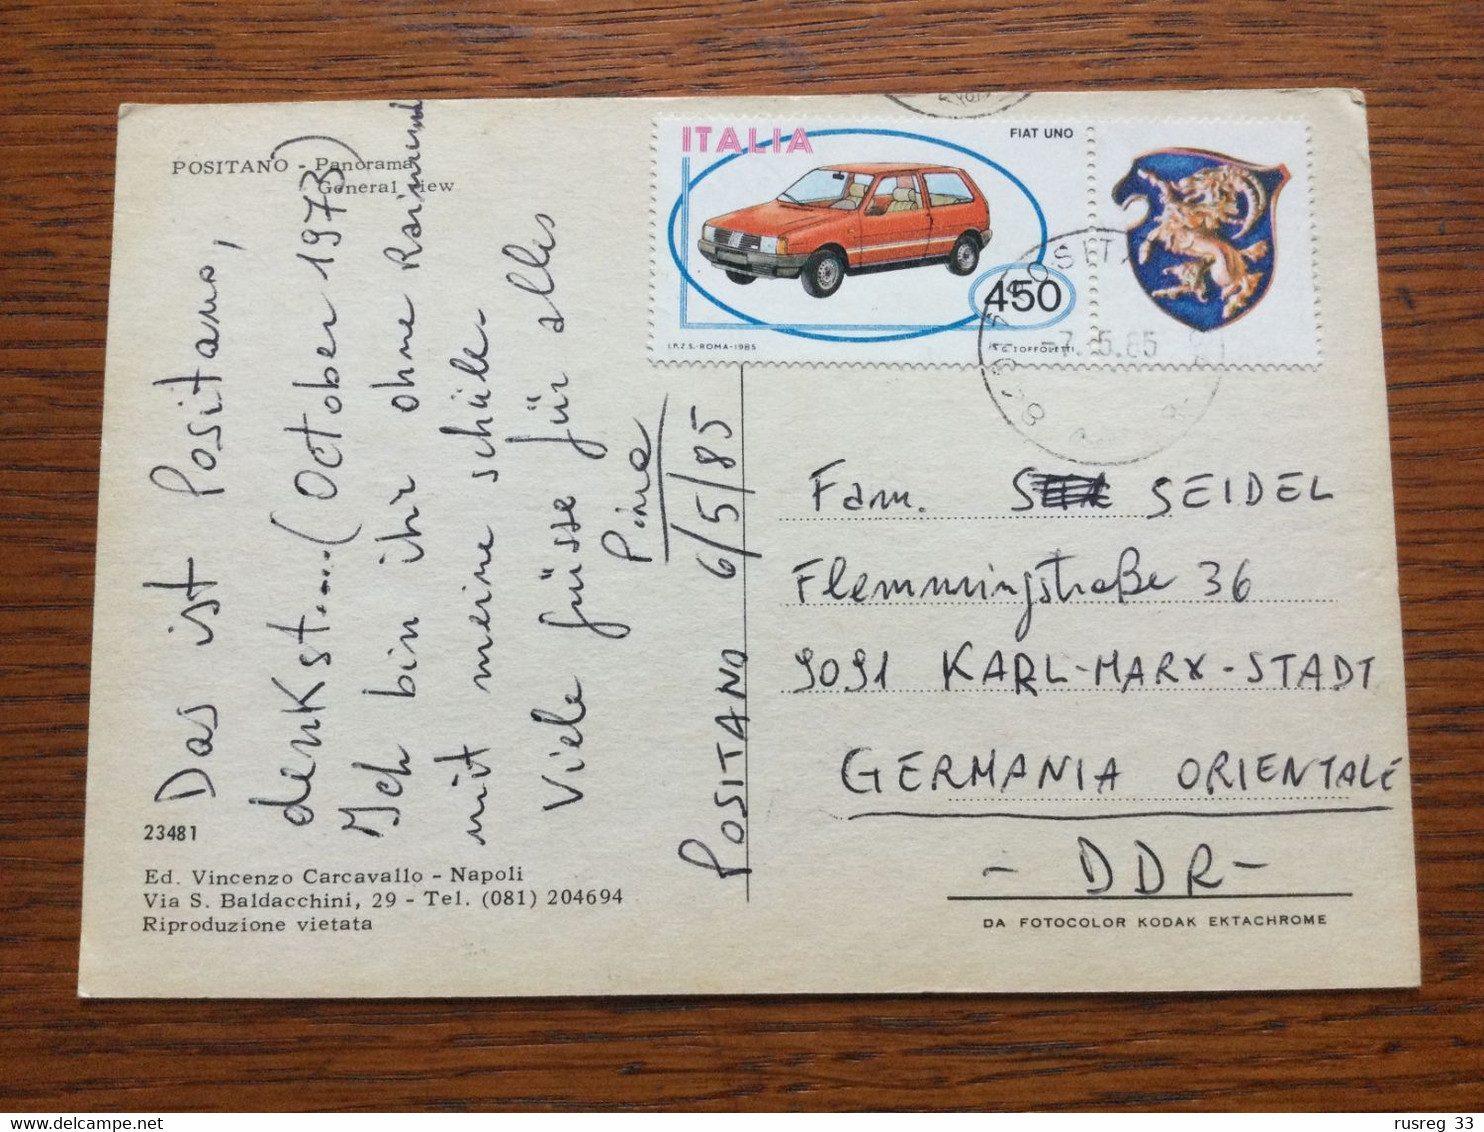 POSITANO - Panorama
General view
Das ist Positano,
denkst....(October 1973)
Ich bin ihr ohne Raimund
mit meine schüler
Viele güsse für alles
Pina
POSITANO 6/5/85
23481
Ed. Vincenzo Carcavallo - Napoli
Via S. Baldacchini, 29 - Tel. (081) 204694
Riproduzione vietata
ITALIA
FIAT UNO
450
I.P.Z.S.-ROMA-1985
G. TOFFOLETTI
-7.5.85
Fam. SEIDEL
Flemmingstraße 36
9091 KARL-MARX-STADT
GERMANIA ORIENTALE
- DDR -
DA FOTOCOLOR KODAK EKTACHROME
rusreg 33